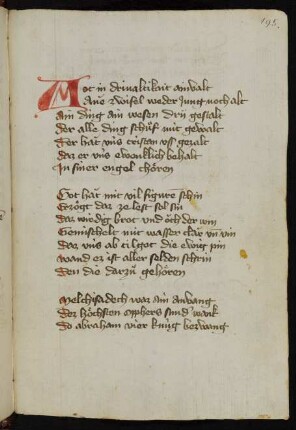 195.
Got in drivaltikait ainvalt
Ane zwifel weder jung noch alt
Ain ding ain wesen dry gestalt
Der alle ding schuf mit gewalt
Der hat vns cristan vss gezalt
Daz er vns ewenklich behalt
In siner engel chören
Got hat mit vil figuren schin
Erzögt daz ze lest sol sin
Daz wirdig brot vnd och der win
Gemischelt mit wasser clar vn vin
Daz vns ab tilgot die ewig pin
wand er ist aller selden schrin
Den die darzu gehören
Melchisadech waz ain anvang
Dez höchsten opfers sund wank
Do abraham vier küng bezwang